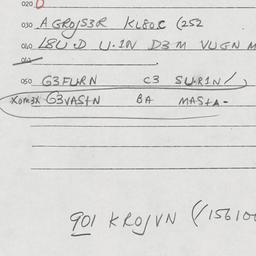 020
030 AGROJS3R KL80C (252
040 L8U.D U.1N D3M VUGN M
050 G3FURN C3 SUR1N/
G3VASTN BA MASTA-
901 KROJVN (/15610